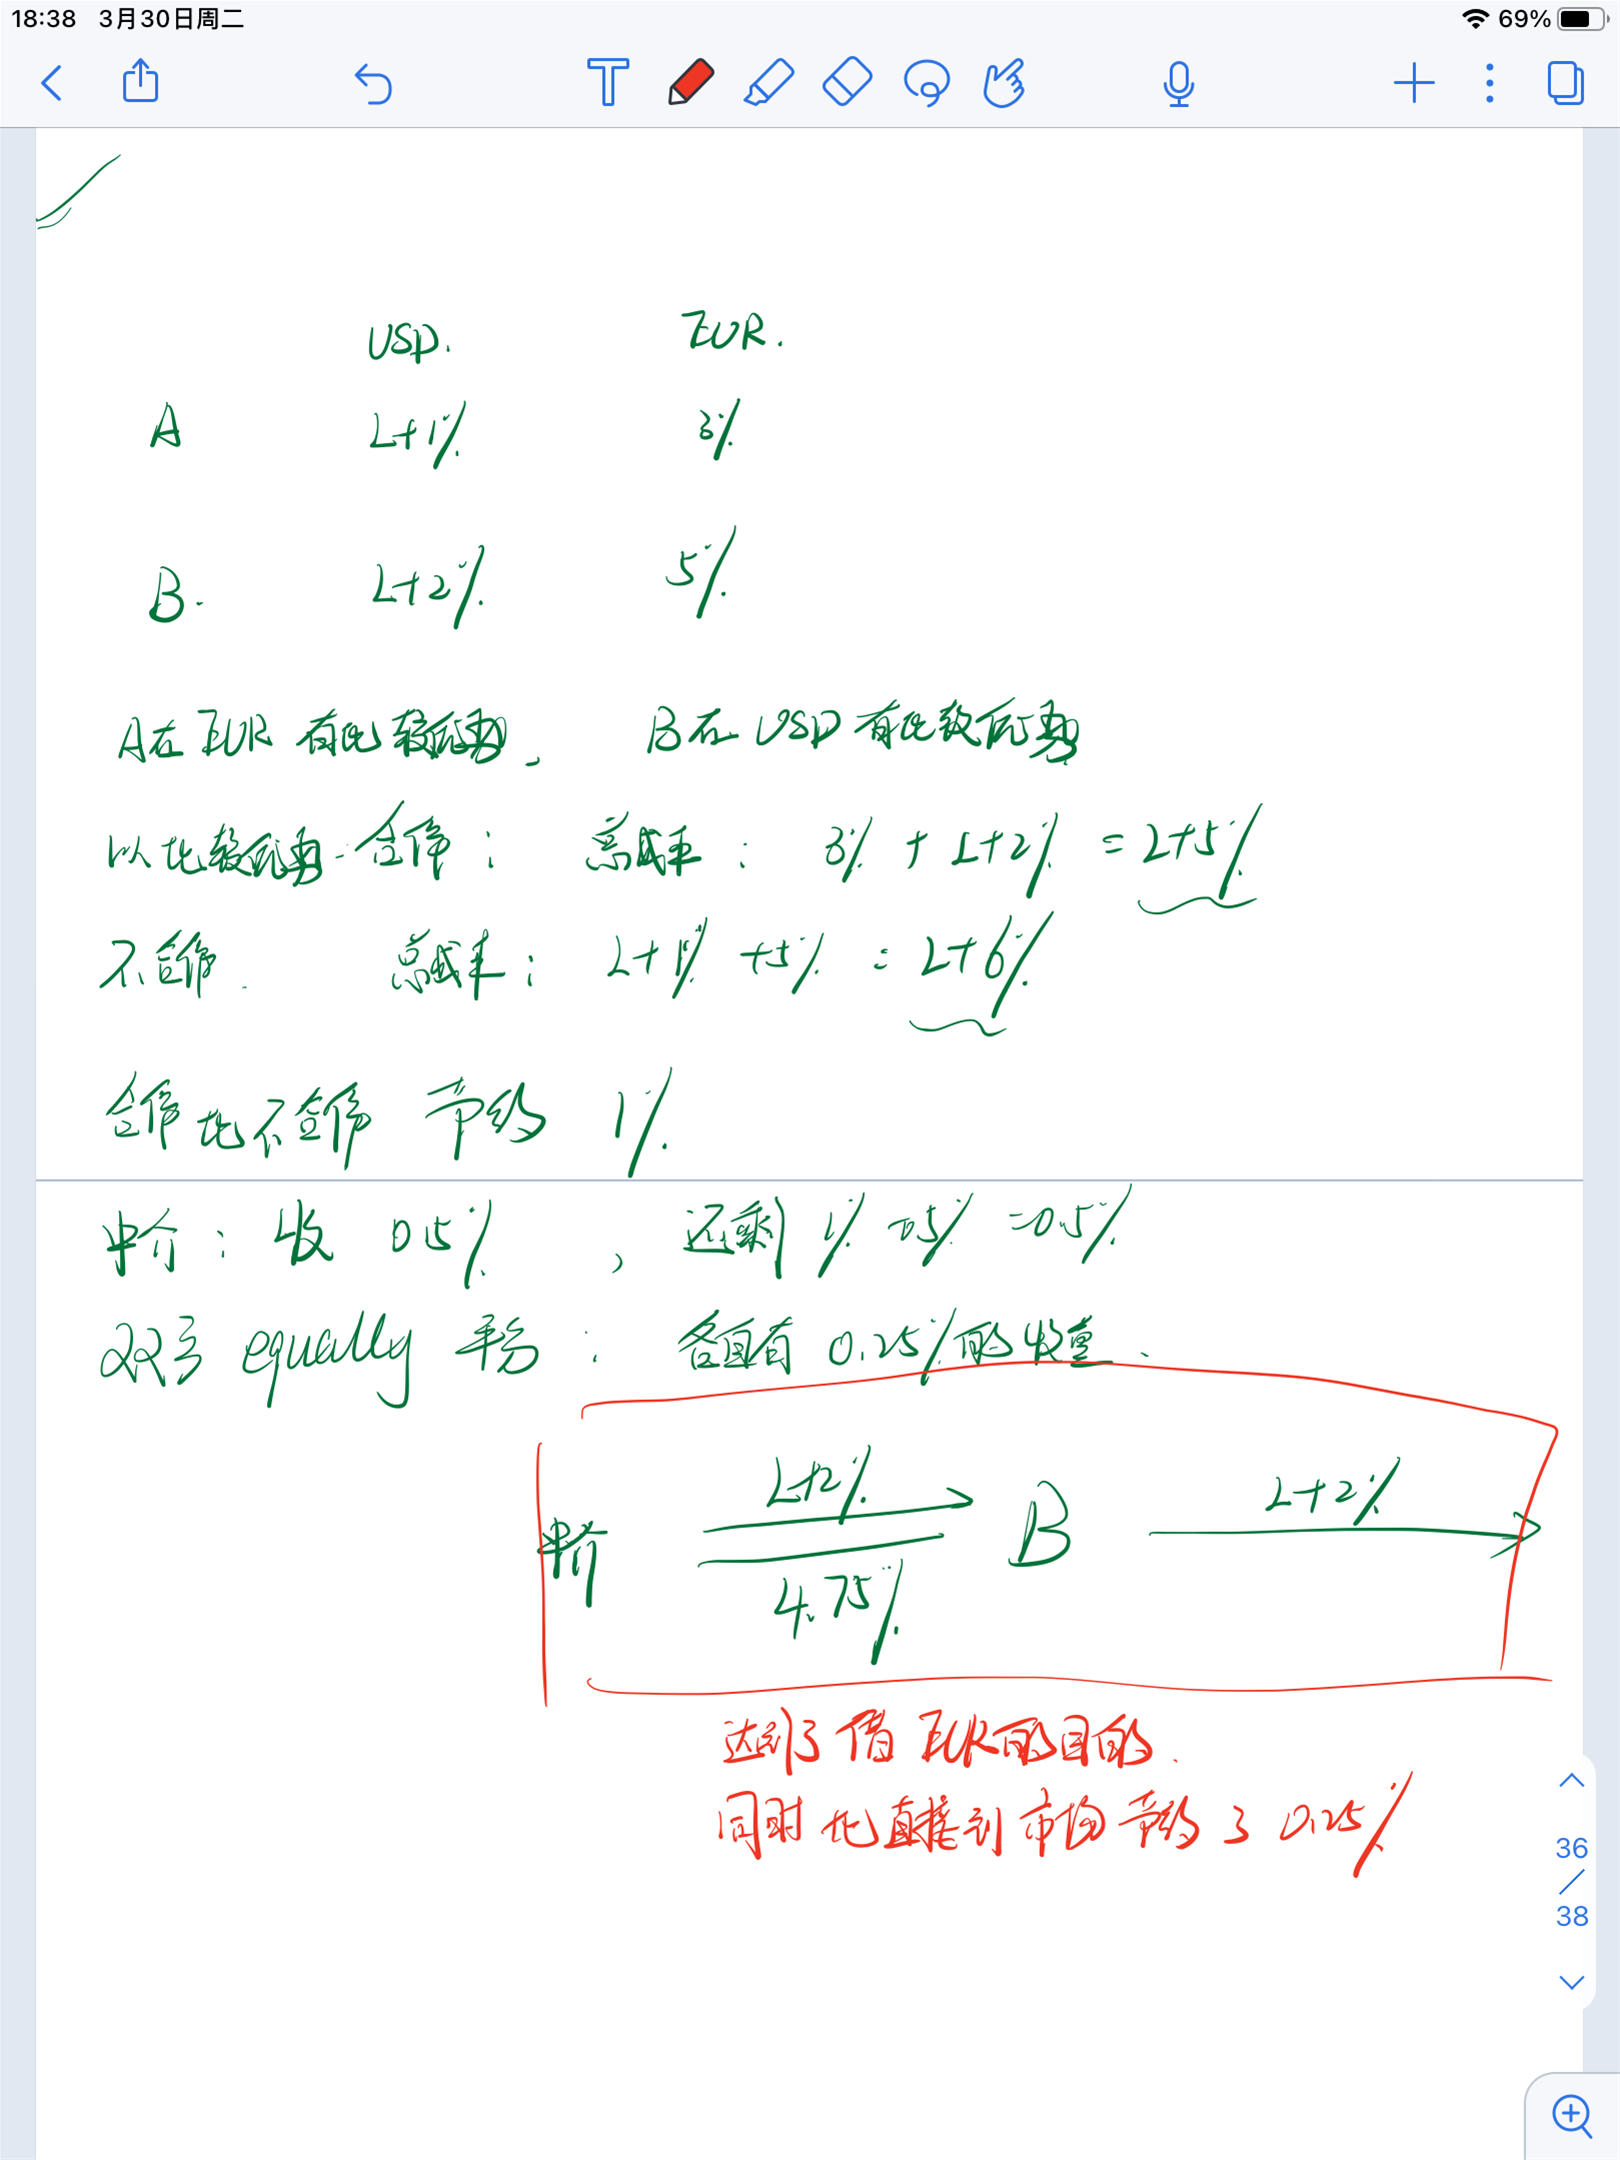 18:38 3月30日周二 69%
T
USD. EUR.
A L+1% 3%
B. L+2% 5%
A在EUR有比较优势, B在USD有比较优势
以比较优势-合作: 总成本: 3% + L+2% = L+5%
不合作. 总成本: L+1% +5% = L+6%
合作比不合作 节约 1%
中介: 收 0.5% , 还剩 1% -0.5% =0.5%
双方 equally 平分: 各自有 0.25%的收益.
L+2% L+2%
中介 B
4.75%
达到了借EUR的目的.
同时比直接到市场节约了0.25%
36
/
38